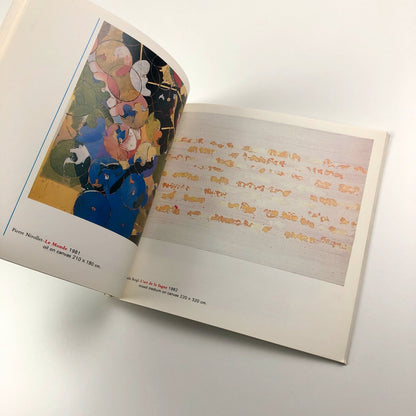 Pierre Nivollet-Le Monde 1981
oil on canvas 210 x 180 cm.
de la fugue 1982
mixed medium on canvas 220 x 320 cm.